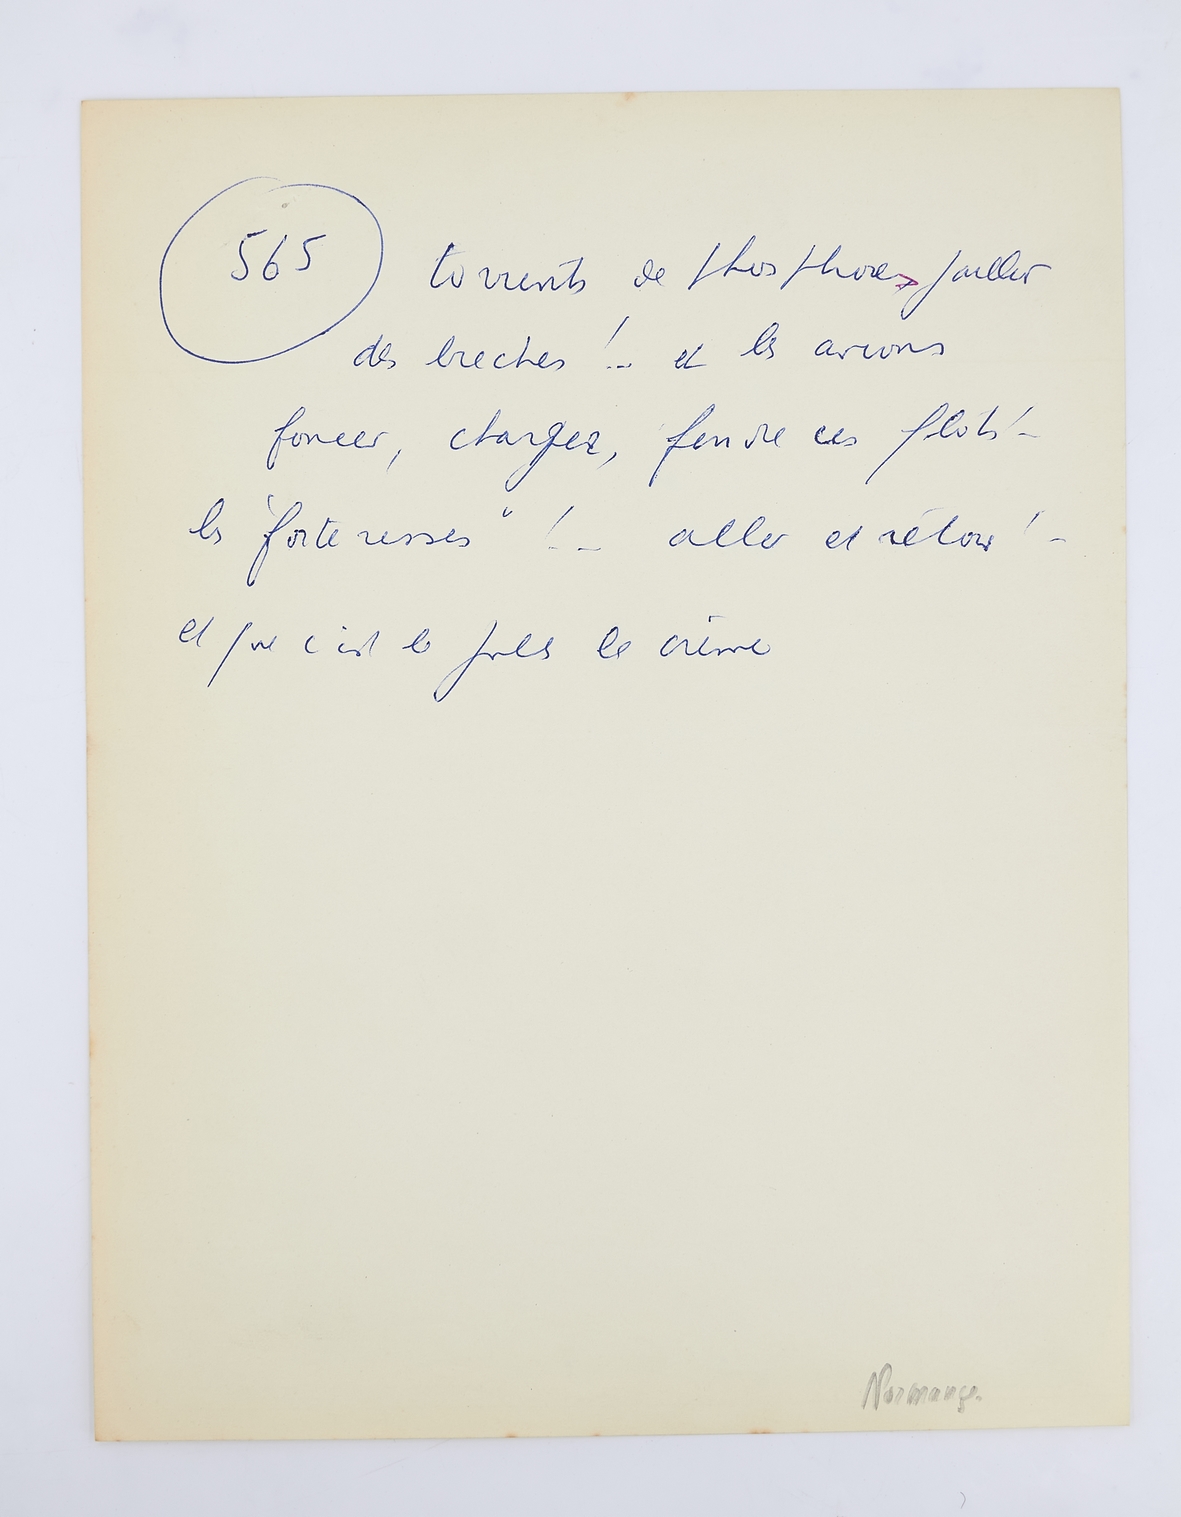 565 torrents de phosphore, jaillir
des breches !.. et les avions
foncer, charger, fendre ces flots !..
les "forteresses" !.. aller et retour !..
et que c'est le Jules le crime
Normance.